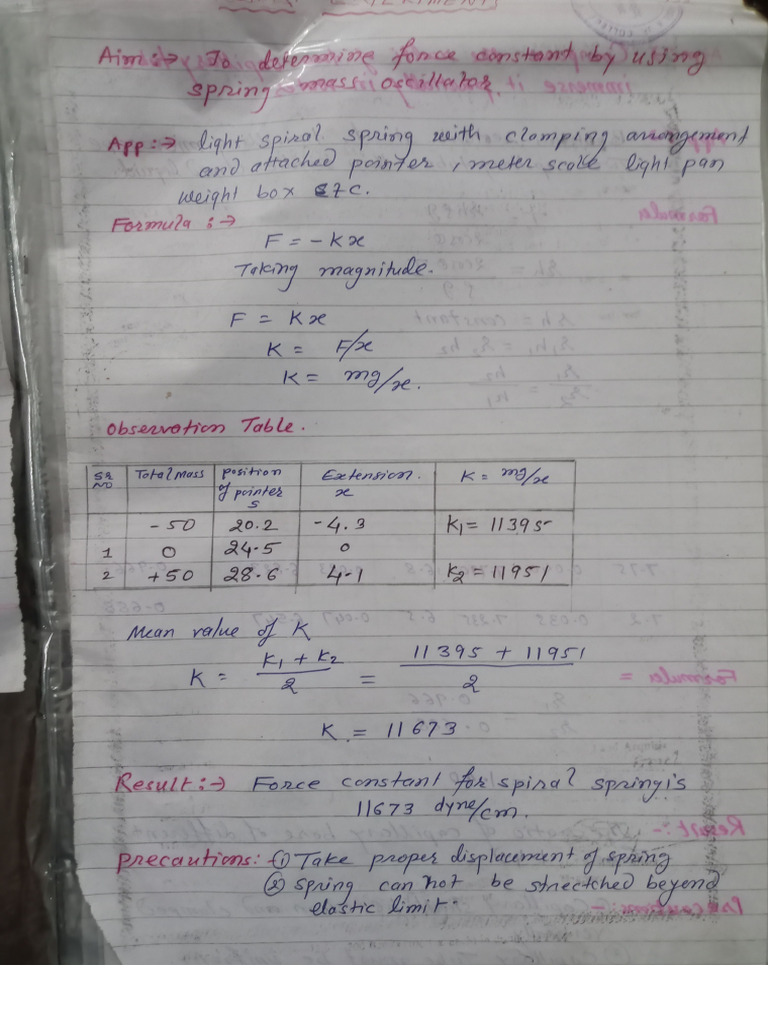 Aim :→ To determine force constant by using
spring mass oscillator.
App :→ light spiral spring with clamping arrangement
and attached pointer, meter scale light pan
weight box etc.
Formula :→
F = -kx
Taking magnitude.
F = Kx
K = F/x
K = mg/x.
Observation Table.
Sr No | Total Mass | position of pointer s | Extension. x | K = mg/x
-50 | 20.2 | -4.3 | K1 = 11395
1 | 0 | 24.5 | 0
2 | +50 | 28.6 | 4.1 | K2 = 11951
Mean value of K
K = K1 + K2 / 2 = 11395 + 11951 / 2
K = 11673
Result :→ Force constant for spiral spring is
11673 dyne/cm.
precautions :- ① Take proper displacement of spring
② spring can not be strectched beyend
elastic limit.